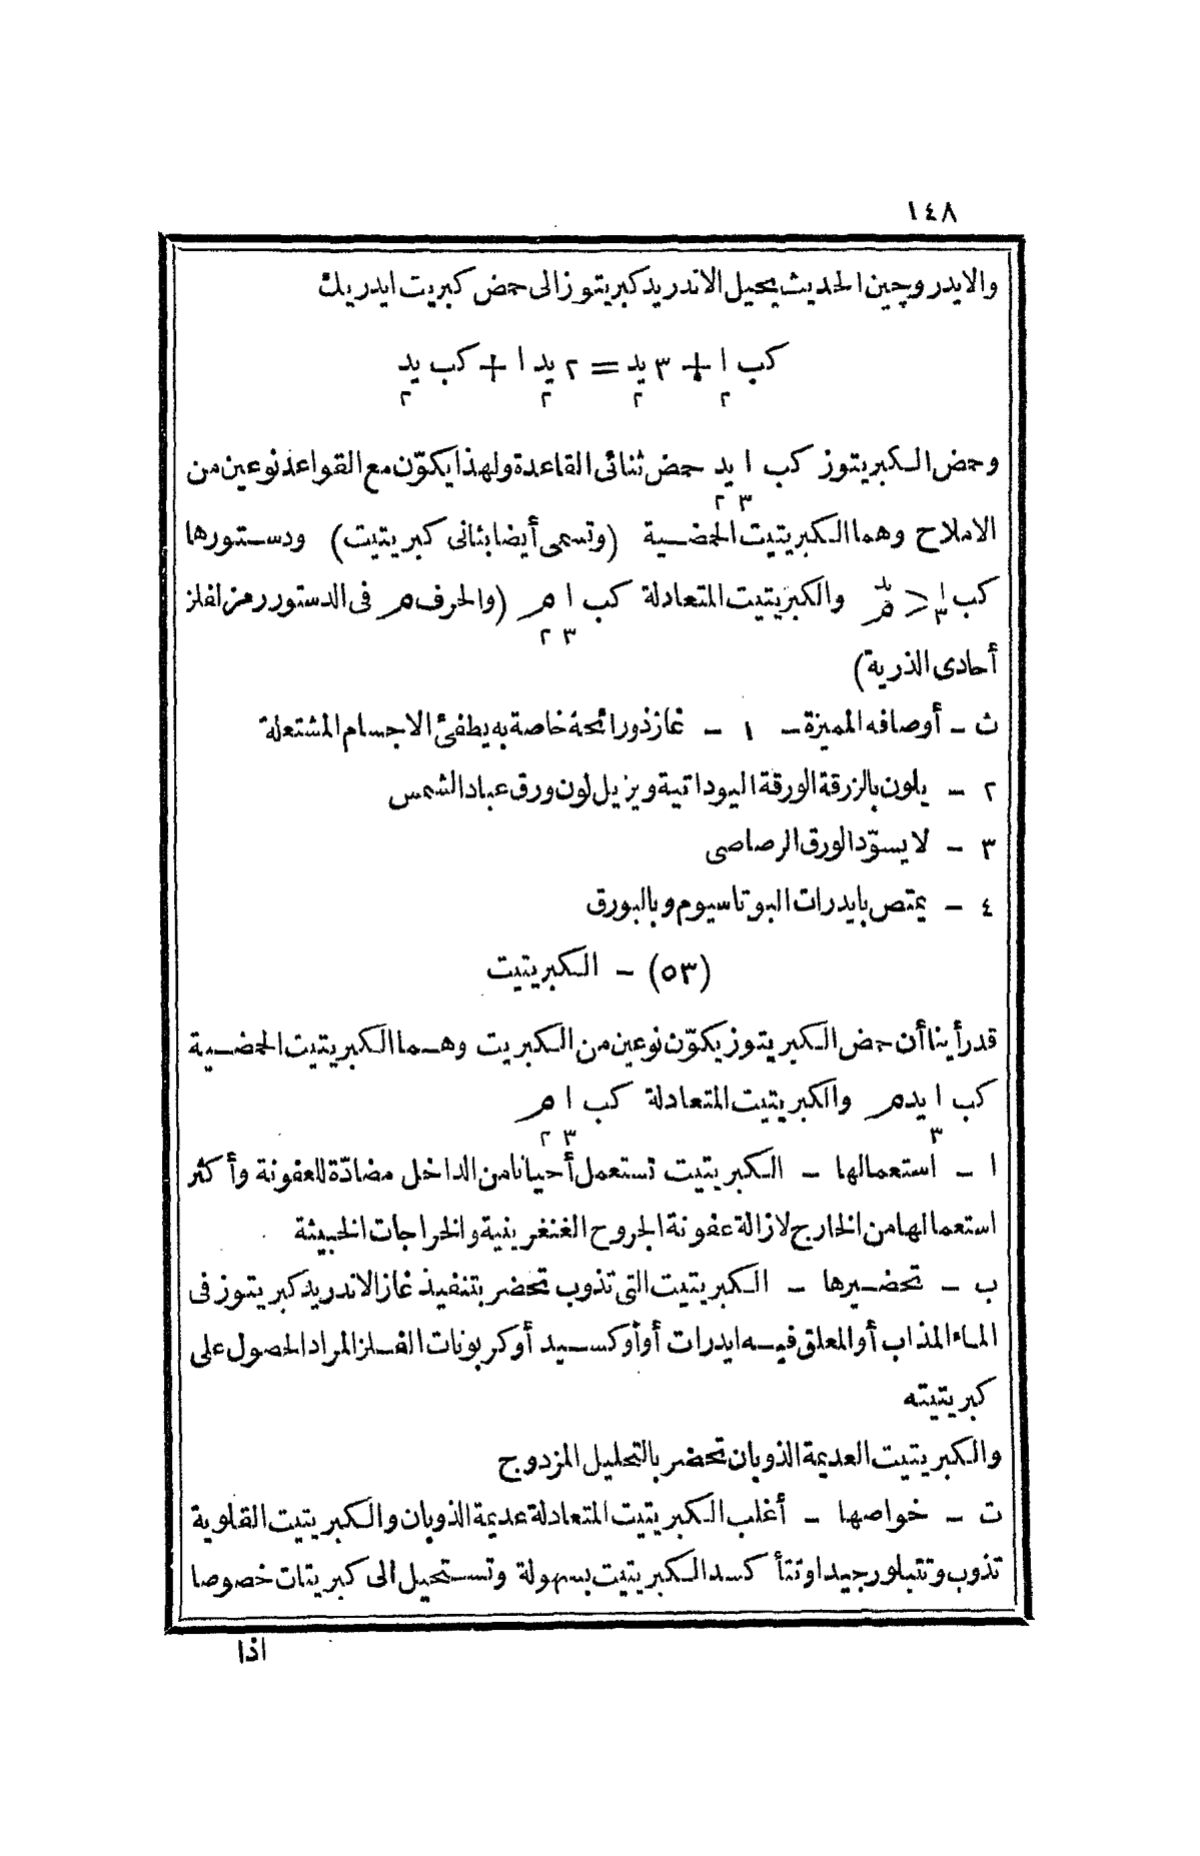 ١٤٨
والايدروچين الحديث يحيل الاندريد كبريتوز الى حمض كبريت ايدريك
كب ا٢ + ٣ يد٢ = ٢ يد٢ ا + كب يد٢
وحمض الكبريتوز كب ا٣ يد٢ حمض ثنائى القاعدة ولهذا يكوّن مع القواعد نوعين من
الاملاح وهما الكبريتيت الحمضية (وتسمى أيضا بثانى كبريتيت) ودستورها
كب ا٣ < يد م والكبريتيت المتعادلة كب ا٣ م٢ (والحرف م فى الدستور رمز لفلز
أحادى الذرية)
ث ـ أوصافه المميزة ـ ١ ـ غاز ذو رائحة خاصة به يطفئ الاجسام المشتعلة
٢ ـ يلون بالزرقة الورقة اليوداتية ويزيل لون ورق عباد الشمس
٣ ـ لا يسوّد الورق الرصاصى
٤ ـ يمتص بايدرات البوتاسيوم وبالبورق
(٥٣) ـ الكبريتيت
قد رأينا أن حمض الكبريتوز يكوّن نوعين من الكبريت وهما الكبريتيت الحمضية
كب ا٣ يد م والكبريتيت المتعادلة كب ا٣ م٢
ا ـ استعمالها ـ الكبريتيت تستعمل أحيانا من الداخل مضادّة للعفونة وأكثر
استعمالها من الخارج لازالة عفونة الجروح الغنغرينية والخراجات الخبيثة
ب ـ تحضيرها ـ الكبريتيت التى تذوب تحضر بتنفيذ غاز الاندريد كبريتوز فى
الماء المذاب أو المعلق فيه ايدرات أو أوكسيد أو كربونات الفلز المراد الحصول على
كبريتيته
والكبريتيت العديمة الذوبان تحضر بالتحليل المزدوج
ت ـ خواصها ـ أغلب الكبريتيت المتعادلة عديمة الذوبان والكبريتيت القلوية
تذوب وتتبلور جيدا وتتأكسد الكبريتيت بسهولة وتستحيل الى كبريتات خصوصا
اذا